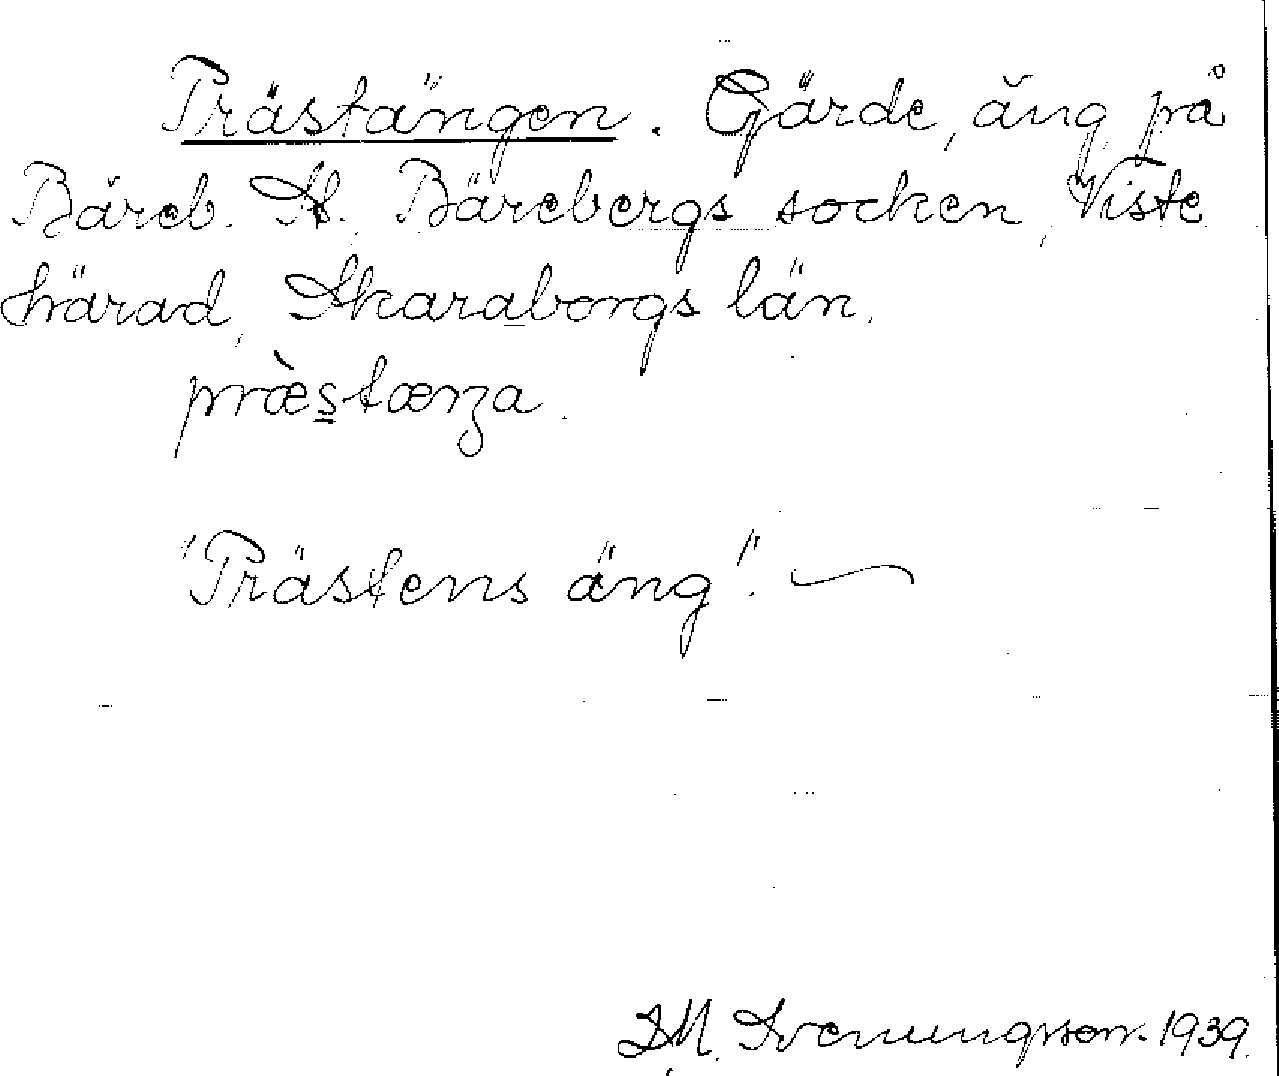 Prästängen. Gärde, äng på
Bäreb. St. Bärebergs socken, Viste
härad, Skaraborgs län.
præ̀stænza.
"Prästens äng".
D.M. Svenungsson. 1939.